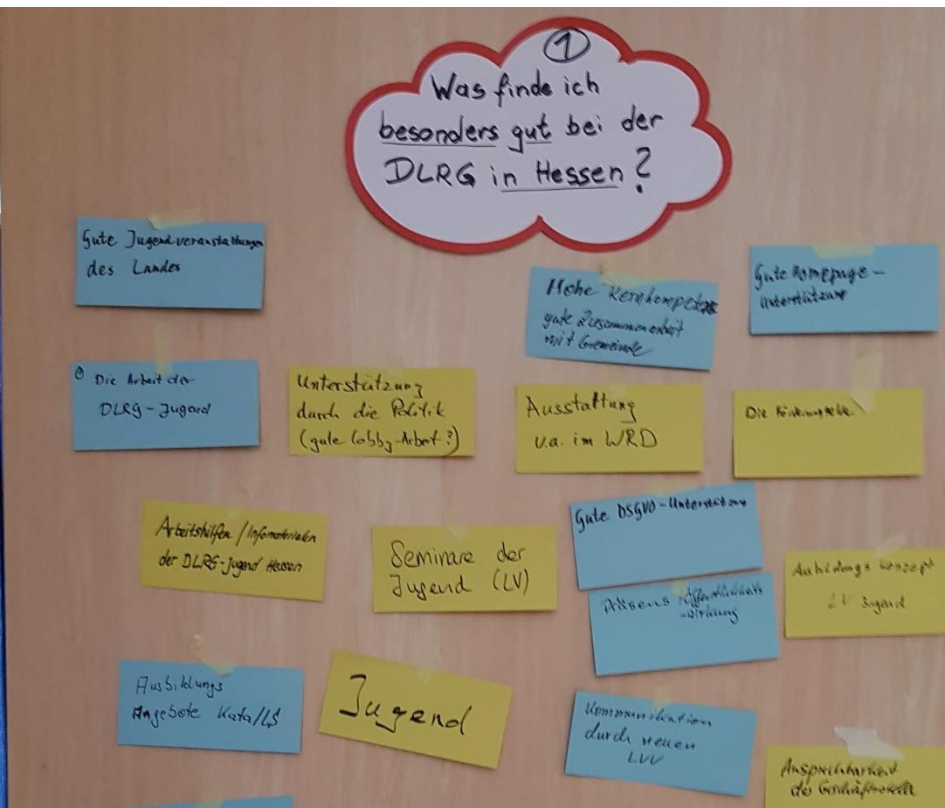 1
Was finde ich
besonders gut bei der
DLRG in Hessen?
Gute Jugendveranstaltungen
des Landes
Hohe Kernkompetenz
gute Zusammenarbeit
mit Gemeinde
Gute Homepage-
Unterstützung
Die Arbeit der
DLRG-Jugend
Unterstützung
durch die Politik
(gute Lobby-Arbeit?)
Ausstattung
v.a. im WRD
Die
Arbeitshilfen/Infomaterialen
der DLRG-Jugend Hessen
Seminare der
Jugend (LV)
Gute DSGVO-Unterstützung
Präsens Öffentlichkeits
-wirkung
Ausbildungs Konzept
LV Jugend
Ausbildungs
Angebote KatS/LS
Jugend
Kommunikation
durch neuen
LVV
Ansprechbarkeit
der Geschäftsstelle